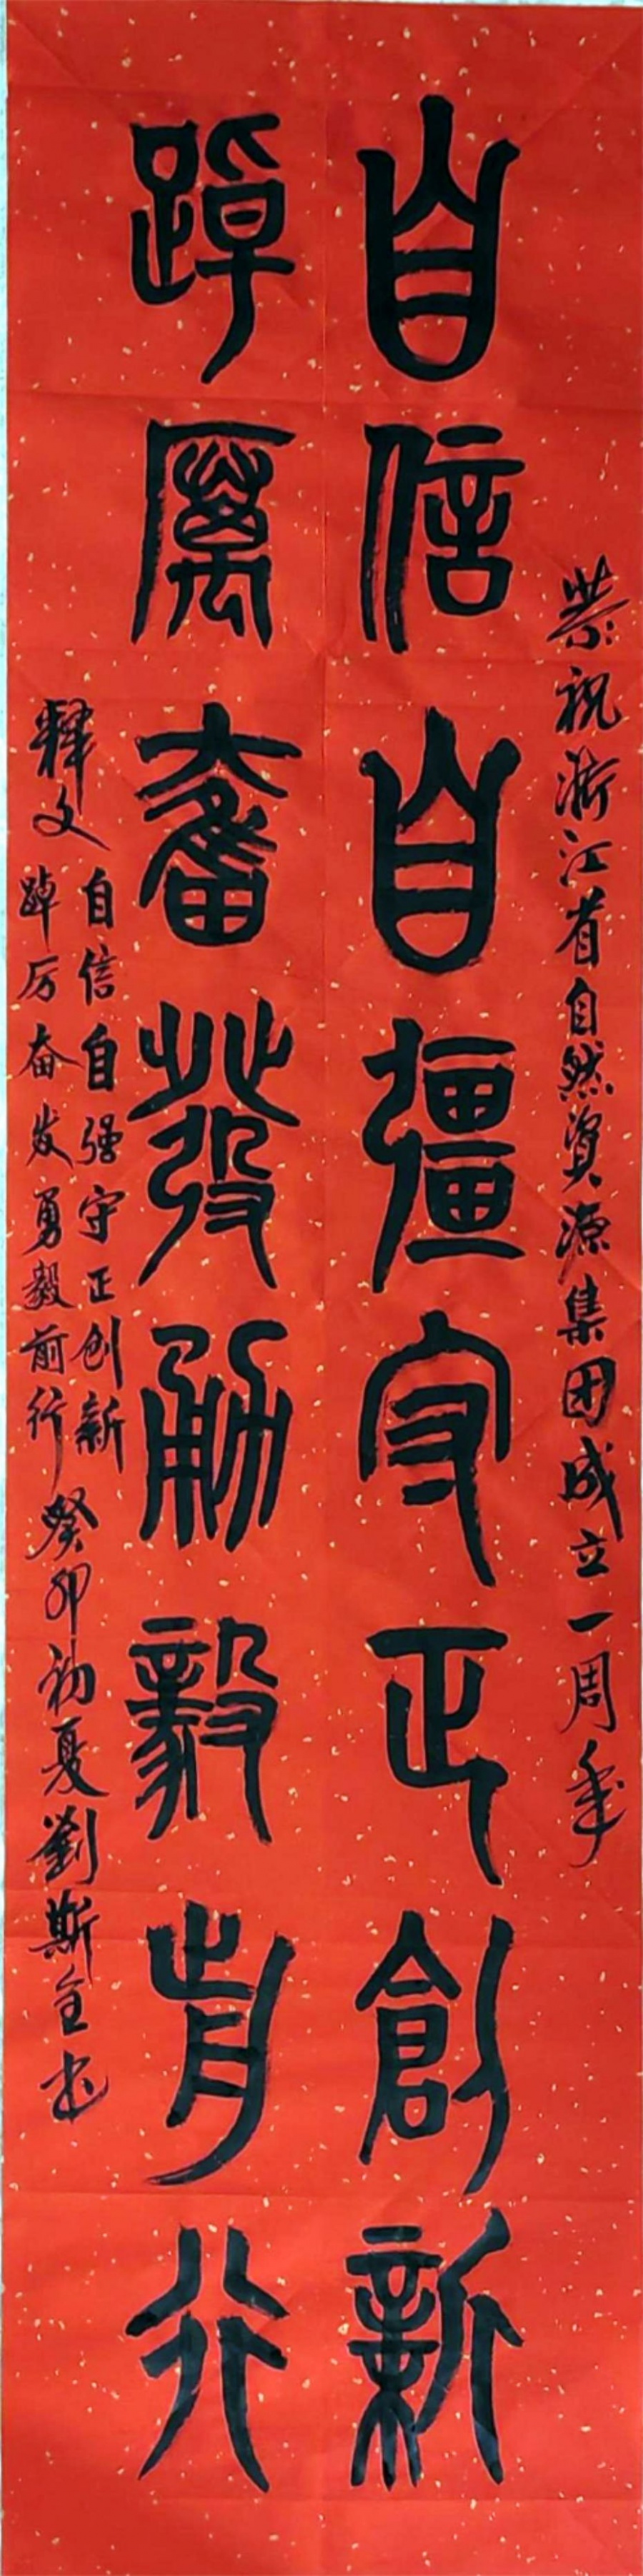 崇祝浙江省自然資源集団成立一周年
自信自彊守正創新
踔厲奮發勇毅前行
释文
自信自强守正创新
踔厉奋发勇毅前行
癸卯初夏劉斯全书